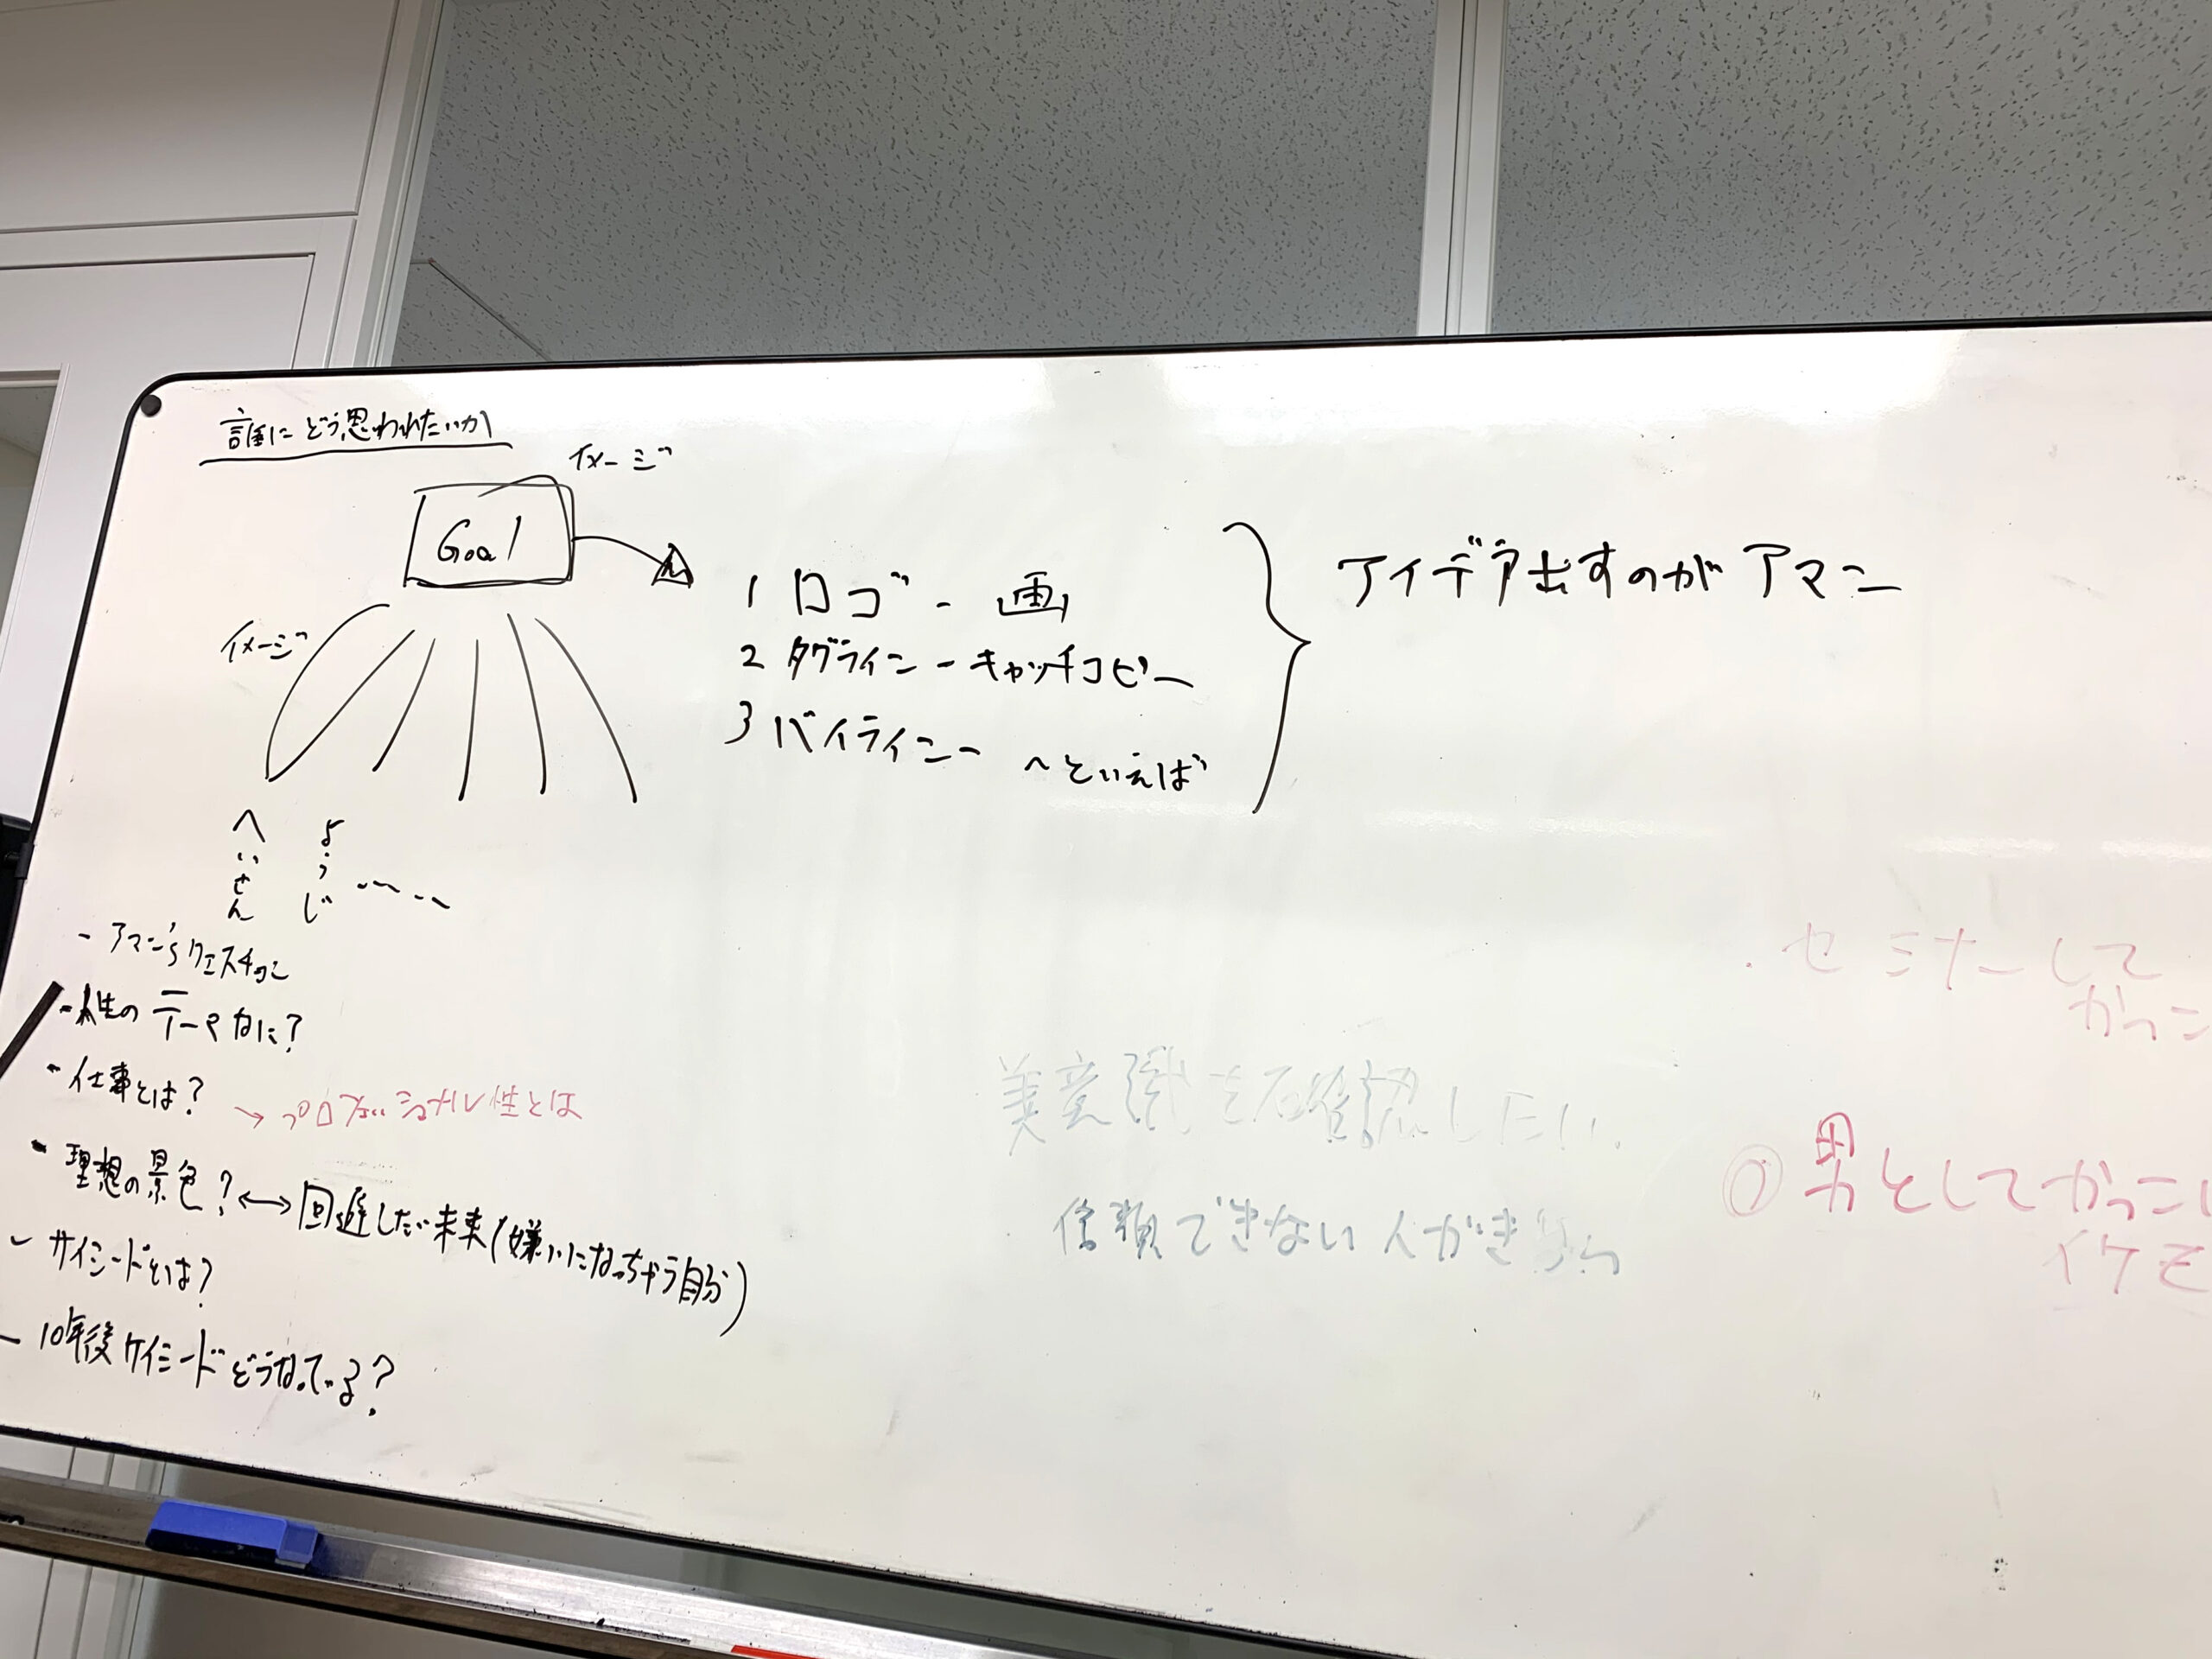 誰にどう思われたいか
イメージ
Goal
イメージ
1 ロゴ - 画
2 タグライン - キャッチコピー
3 バイライン - 〜といえば
アイデア出すのがアマン
へいせん
ようじ
- アマン'sクエスチョン
- 人生のテーマなに?
- 仕事とは?
→ プロフェッショナル性とは
- 理想の景色? ↔ 回避したい未来(嫌いになっちゃう自分)
- ケイシードとは?
- 10年後ケイシードどうなっている?
・セミナーして
かっこ
美意識を確認したい
信頼できない人がきらい
① 男としてかっこい
イケモ